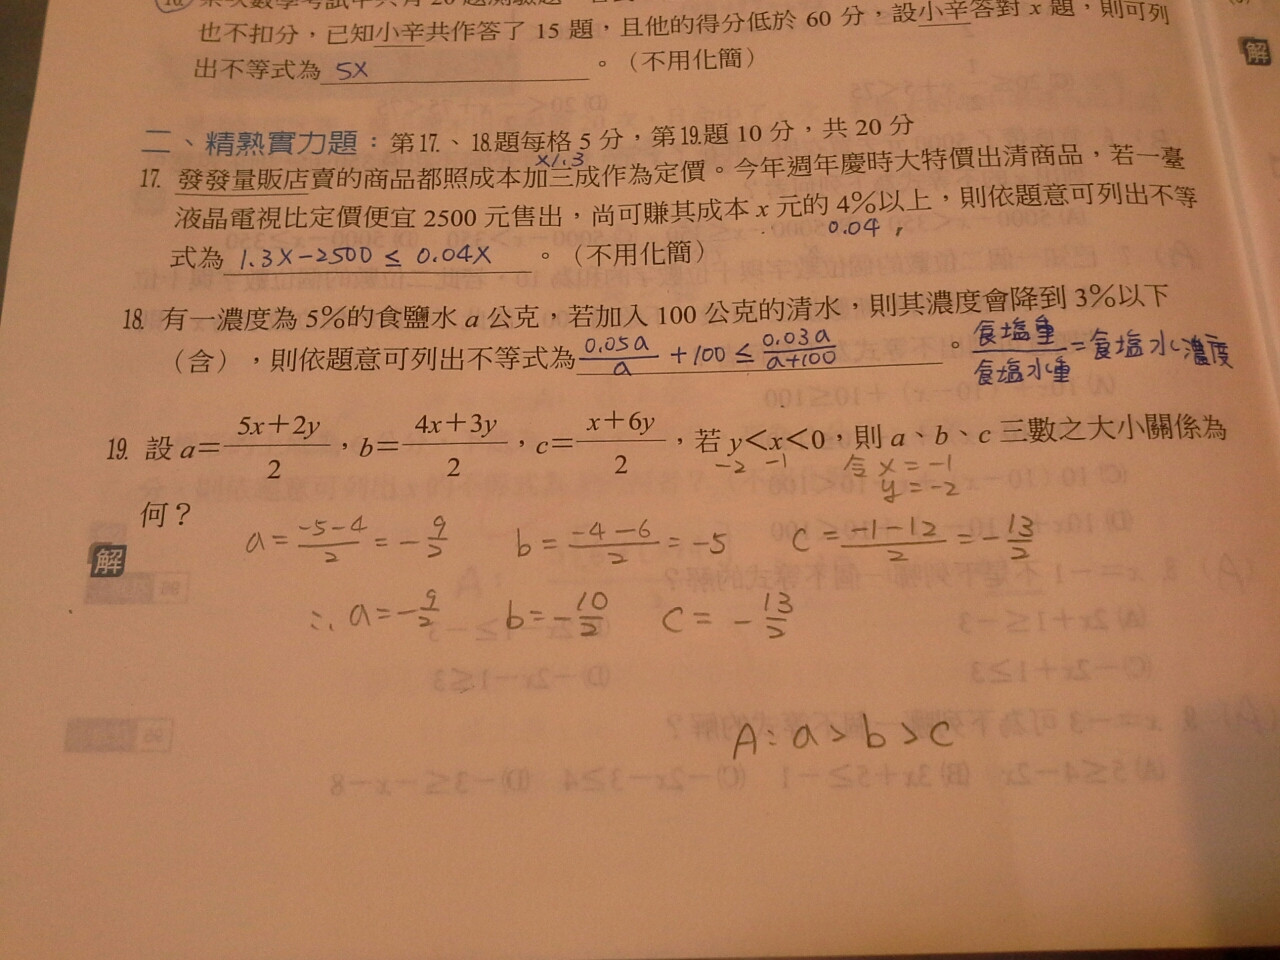 也不扣分，已知小辛共作答了 15 題，且他的得分低於 60 分，設小辛答對 x 題，則可列
出不等式為 5X 。（不用化簡）
解
二、精熟實力題：第17.、18.題每格 5 分，第19.題 10 分，共 20 分
x1.3
17. 發發量販店賣的商品都照成本加三成作為定價。今年週年慶時大特價出清商品，若一臺
液晶電視比定價便宜 2500 元售出，尚可賺其成本 x 元的 4%以上，則依題意可列出不等
0.04
式為 1.3X-2500 ≤ 0.04X 。（不用化簡）
18. 有一濃度為 5%的食鹽水 a 公克，若加入 100 公克的清水，則其濃度會降到 3%以下
（含），則依題意可列出不等式為 0.05a/a + 100 ≤ 0.03a/a+100 。 食塩重/食塩水重 = 食塩水濃度
19. 設 a=5x+2y/2，b=4x+3y/2，c=x+6y/2，若 y<x<0，則 a、b、c 三數之大小關係為
-2 -1 令 x=-1
y=-2
何？
解
a=-5-4/2=-9/2 b=-4-6/2=-5 c=-1-12/2=-13/2
∴ a=-9/2 b=-10/2 c=-13/2
A:a>b>c